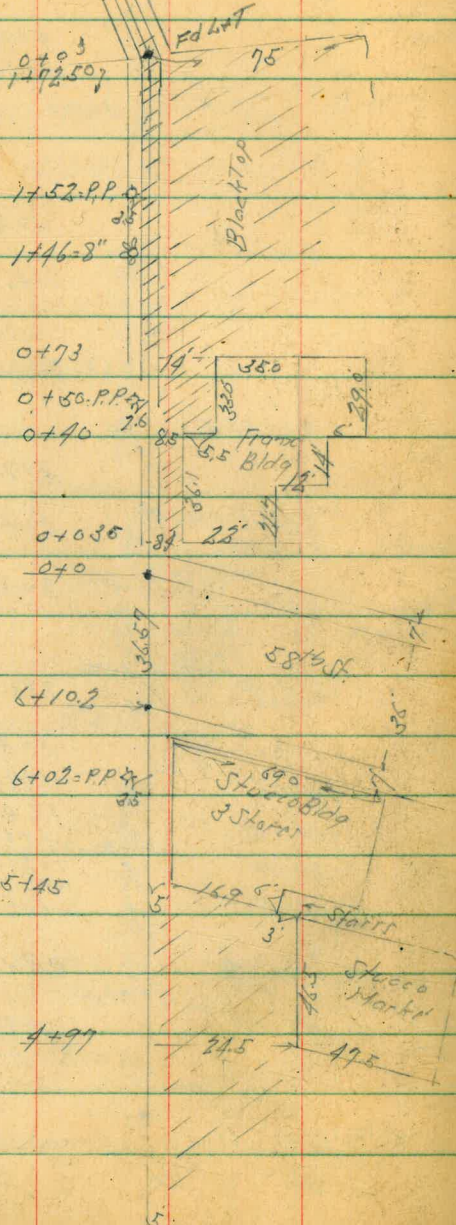 Fd L+T
0+0
75
1+72.50
Black Top
1+52=P.P.
1+46=8"
0+73
14'
35.0
33.0
29.0
0+50=P.P.
2.6
0+40
8.5
5.5
Frame
Bldg
14'
12'
36.1
21.7
0+03.5
22'
0+0
7'
36.67
58th St.
6+10.2
36'
6+02=P.P.
3.5
69.0
7'
Stucco Bldg
3 Stores
5+45
5'
16.9
6'
Stairs
3'
46.5
Stucco
Market
4+97
24.5
47.5
5'